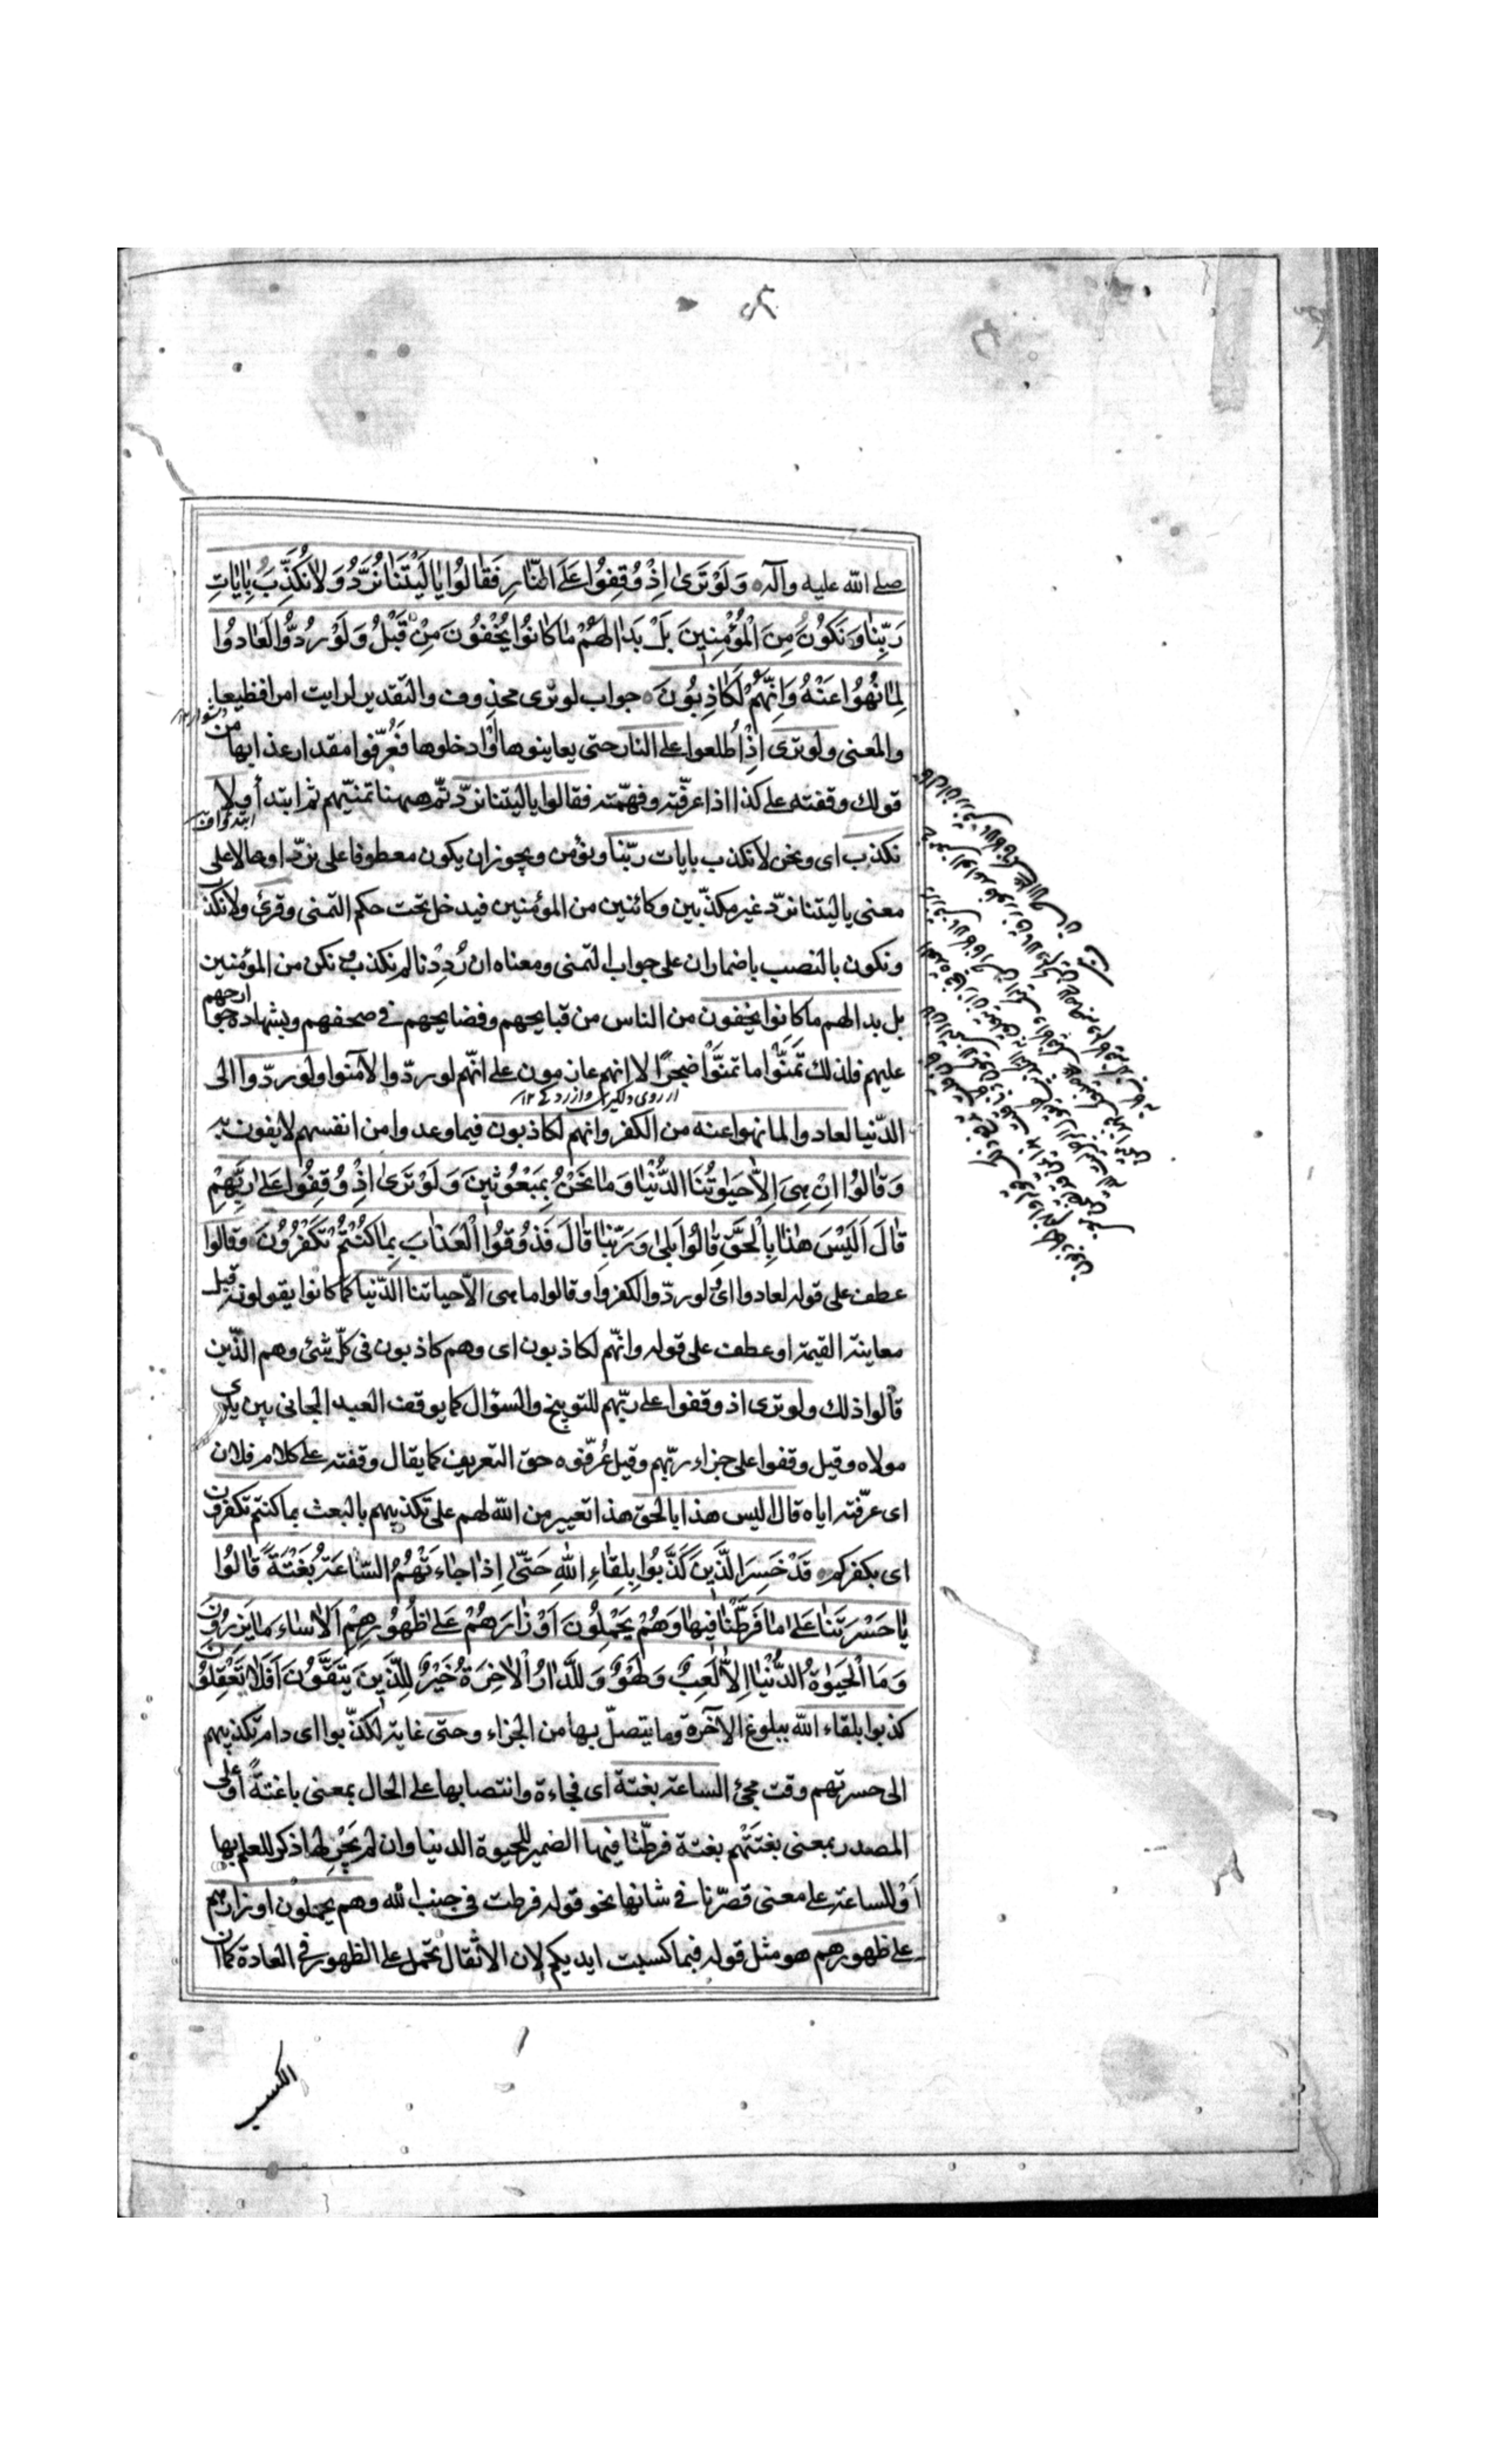 صلى الله عليه وآله وَلَوْ تَرَىٰ اِذْ وُقِفُوا عَلَى النّارِ فَقالُوا يا لَيْتَنا نُرَدُّ وَلا نُكَذِّبَ بِاٰياتِ
رَبِّنا وَنَكُونَ مِنَ الْمُؤْمِنِينَ بَلْ بَدا لَهُمْ ما كانُوا يُخْفُونَ مِنْ قَبْلُ وَلَوْ رُدُّوا لَعادُوا
لِما نُهُوا عَنْهُ وَاِنَّهُمْ لَكاذِبُونَ جواب لو ترى محذوف والتقدير لرايت امرا فظيعا
والمعنى ولو ترى اِذْ اُطلعوا على النار حتى يعاينوها أوْ ادخلوها فعُرّفوا مقدار عذابها من
قولك وقفته على كذا اذا عرّفته وفهّمته فقالوا يا ليتنا نردّ تمّ ههنا تمنّيهم ثم ابتدأ ولا
نكذب اى ونحن لا نكذب بايات ربّنا ونؤمن ويجوز ان يكون معطوفا على نردّ او حالا على
معنى يا ليتنا نردّ غير مكذّبين وكائنين من المؤمنين فيدخل تحت حكم التمنى وقرئ ولا نكذب
ونكون بالنصب باضمار ان على جواب التمنى ومعناه ان رُدِدْنا لم نكذب ونكن من المؤمنين
بل بدا لهم ما كانوا يخفون من الناس من قبايحهم وفضايحهم فى صحفهم وبشهادة جوارحهم
عليهم فلذلك تمَنَّوْا ما تمنَّوْا ضجرًا لا انهم عازمون على انّهم لو ردّوا لآمنوا ولو ردّوا الى
الدّنيا لعادوا لما نهوا عنه من الكفر وانهم لكاذبون فيما وعدوا من انفسهم لا يفون به
وَقالُوا اِنْ هِىَ اِلّا حَيٰوتُنَا الدُّنْيا وَما نَحْنُ بِمَبْعُوثِينَ وَلَوْ تَرىٰ اِذْ وُقِفُوا عَلىٰ رَبِّهِمْ
قالَ اَلَيْسَ هٰذا بِالْحَقِّ قالُوا بَلىٰ وَرَبِّنا قالَ فَذُوقُوا الْعَذابَ بِما كُنْتُمْ تَكْفُرُونَ وقالوا
عطف على قوله لعادوا اى لو ردّوا لكفروا وقالوا ما هى الّا حياتنا الدّنيا كما كانوا يقولونه قبل
معاينة القيمة او عطف على قوله وانّهم لكاذبون اى وهم كاذبون فى كلّ شئ وهم الّذين
قالوا ذلك ولو ترى اذ وقفوا على ربّهم للتوبيخ والسؤال كما يوقف العبد الجانى بين يدى
مولاه وقيل وقفوا على جزاء ربّهم وقيل عُرّفوه حق التعريف كما يقال وقفته على كلام فلان
اى عرّفته اياه قال اليس هذا بالحق هذا تعيير من الله لهم على تكذيبهم بالبعث بما كنتم تكفرون
اى بكفركم قَدْ خَسِرَ الَّذِينَ كَذَّبُوا بِلِقاءِ اللهِ حَتّىٰ اِذا جاءَتْهُمُ السّاعَةُ بَغْتَةً قالُوا
يا حَسْرَتَنا عَلىٰ ما فَرَّطْنا فِيها وَهُمْ يَحْمِلُونَ اَوْزارَهُمْ عَلىٰ ظُهُورِهِمْ اَلا ساءَ ما يَزِرُونَ
وَمَا الْحَيٰوةُ الدُّنْيا اِلّا لَعِبٌ وَلَهْوٌ وَلَلدّارُ الْاٰخِرَةُ خَيْرٌ لِلَّذِينَ يَتَّقُونَ اَفَلا تَعْقِلُونَ
كذبوا بلقاء الله ببلوغ الآخرة وما يتصلّ بها من الجزاء وحتى غاية لكذّبوا اى دام تكذيبهم
الى حسرتهم وقت مجئ الساعة بغتة اى فجاءة وانتصابها على الحال بمعنى باغتةً أو على
المصدر بمعنى بغتَتْهم بغتة فرطّنا فيها الضمير للحيوة الدنيا وان لم يَجْرِ لها ذكر للعلم بها
اَوْ للساعة على معنى قصّرنا فى شانها نحو قوله فرطت فى جنب الله وهم يحملون اوزارهم
على ظهورهم هو مثل قوله فبما كسبت ايديكم لان الاثقال تحمل على الظهور فى العادة كما ان
الكسب